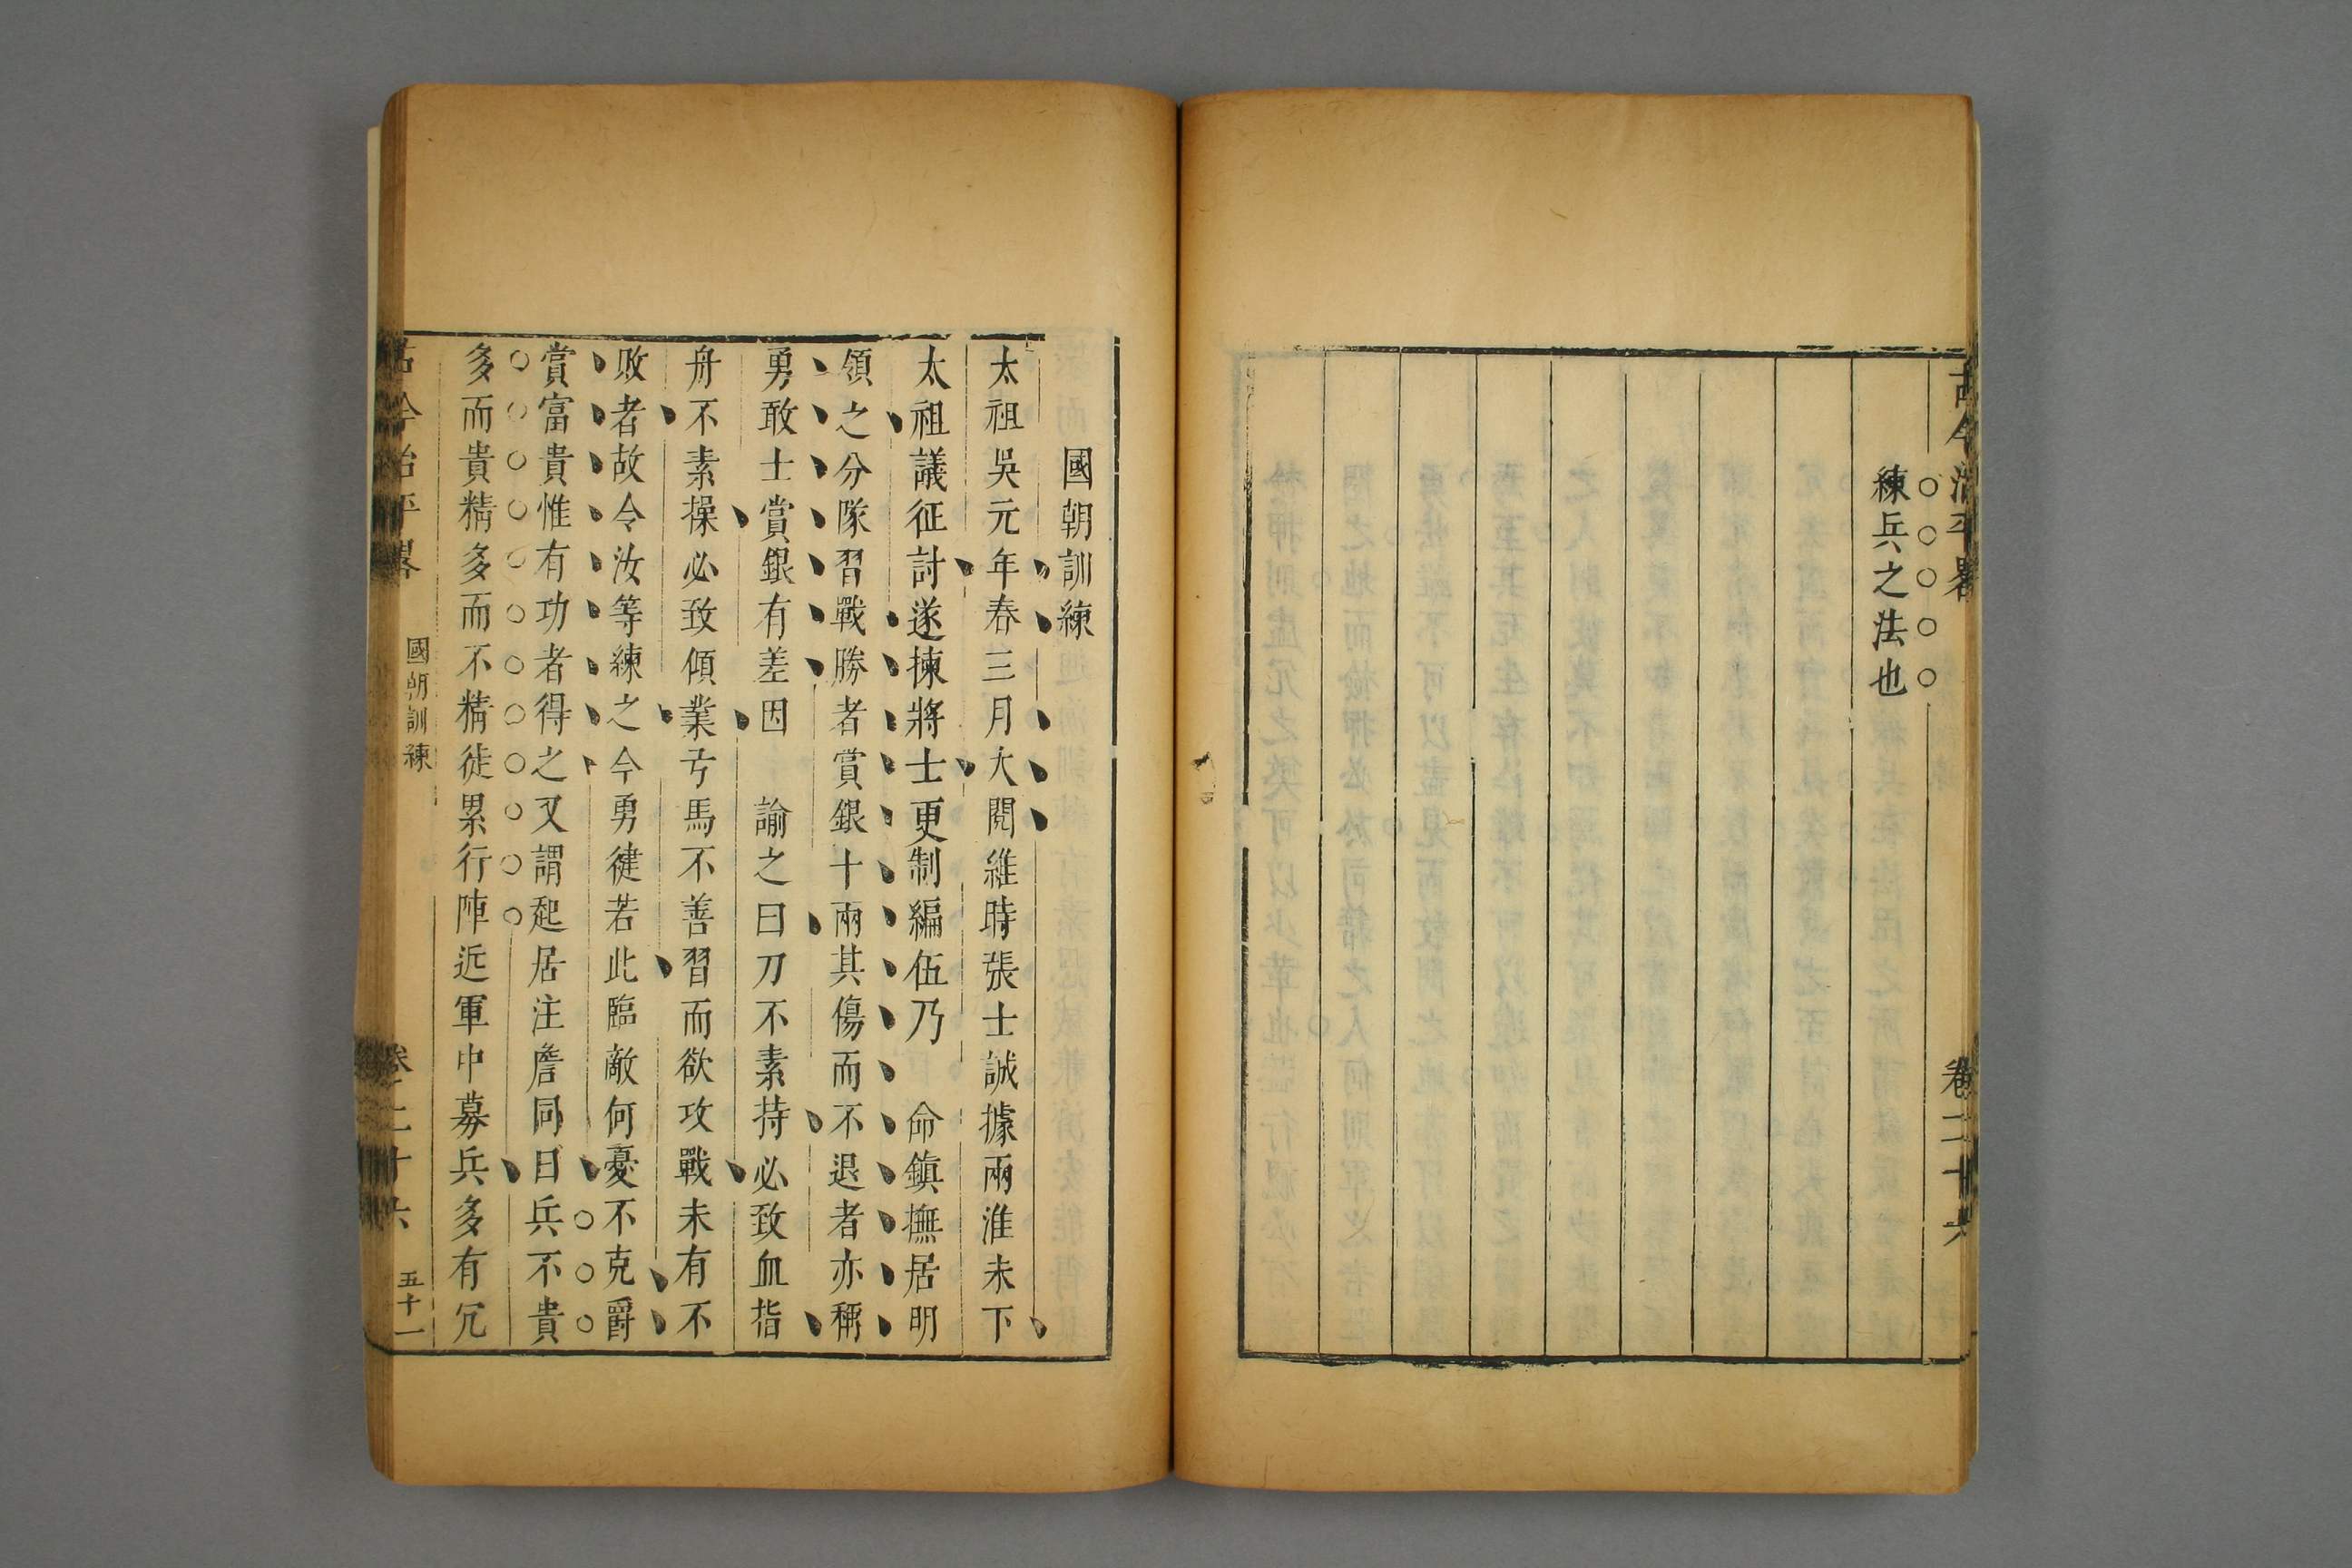 古今治平畧
卷二十六
練兵之法也
國朝訓練
太祖吳元年春三月大閱維時張士誠據兩淮未下
太祖議征討遂揀將士更制編伍乃 命鎮撫居明
領之分隊習戰勝者賞銀十兩其傷而不退者亦稱
勇敢士賞銀有差因 諭之曰刀不素持必致血指
舟不素操必致傾業亏馬不善習而欲攻戰未有不
敗者故令汝等練之今勇徤若此臨敵何憂不克爵
賞富貴惟有功者得之又謂起居注詹同曰兵不貴
多而貴精多而不精徒累行陣近軍中募兵多有冗
古今治平畧
國朝訓練
卷二十六
五十一